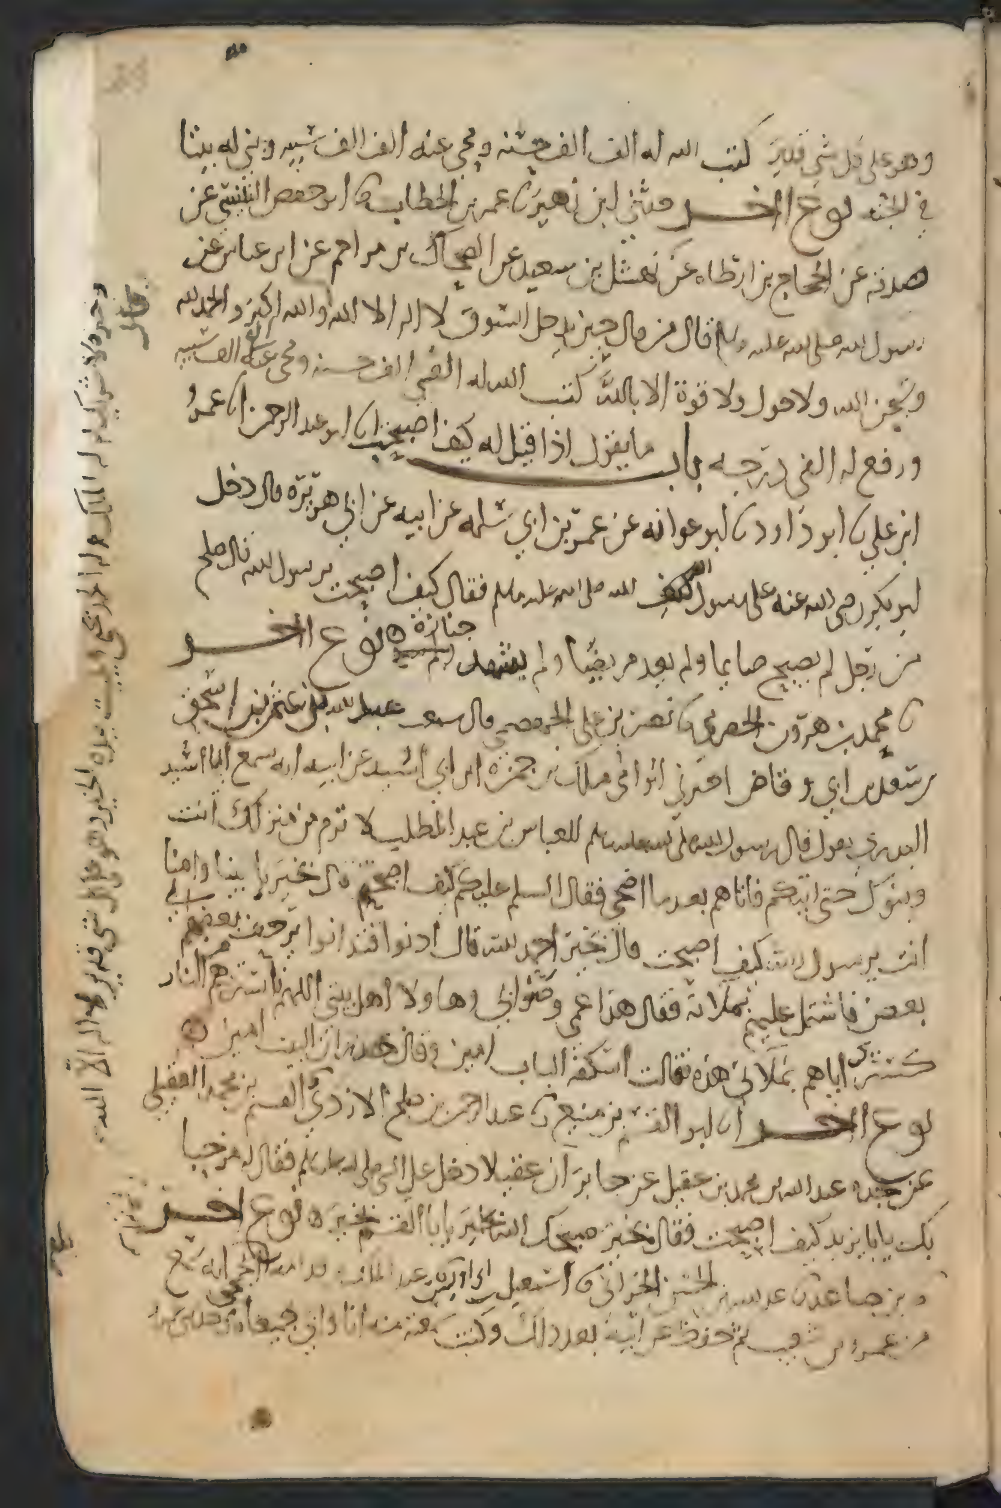 وهو على كل شي قدير كتب الله له الف الف حسنه ومحي عنه الف الف سييه وبنى له بيتا
في الجنه نوع اخر حدثني ابن زهير عمر بن الخطاب ابو حفص التنيسي عن
صدقه عن الحجاج بن ارطاه عن نهشل بن سعيد عن الضحاك بن مزاحم عن ابن عباس عن
رسول الله صلى الله عليه وسلم قال من قال حين يدخل السوق لا اله الا الله والله اكبر والحمد لله
وسبحن الله ولا حول ولا قوة الا بالله كتب الله له الفي الف حسنه ومحى عنه الف سييه
ورفع له الفي درجه باب ما يقول اذا قيل له كيف اصبحت ابو عبد الرحمن عمرو
ابن علي ابو داود ابو عوانه عن عمر بن ابي سلمه عن ابيه عن ابي هريره قال دخل
ابو بكر رضي الله عنه على رسول الله صلى الله عليه وسلم فقال كيف اصبحت يرسول الله قال صلح
من رجل لم يصبح صايما ولم يعد مريضا ولم يشهد جنازة نوع اخر
محمد بن هرون الحضرمي نصر بن علي الجهضمي قال عبد الله بن عثمن بن اسحق
بن سعد بن ابي وقاص اخبرني ابو امي ملك بن حمزه بن ابي اسيد عن ابيه انه سمع ابا اسيد
البدري يقول قال رسول الله صلى الله عليه وسلم للعباس بن عبد المطلب لا ترم من منزلك انت
وبنوك حتى اتيكم فاتاهم بعد ما اضحى فقال السلم عليكم كيف اصبحتم قال بخير بابينا وامنا
انت يرسول الله كيف اصبحت قال بخير احمد الله قال ادنوا فتدانوا يزحف بعضهم
بعض فاشتمل عليهم بملاته فقال هذا عمي وصنو ابي وهاولا اهل بيتي اللهم استرهم من النار
كستري اياهم بملاتي هذه فقالت اسكفه الباب امين وقال جدران البيت امين
نوع اخر ابو القسم بن منيع عبد الرحمن بن صلح الازدي القسم بن محمد العقيلي
عن جده عبد الله بن محمد بن عقيل عن جابر ان عقيلا دخل على النبي صلى الله عليه وسلم فقال له مرحبا
بك يابا يزيد كيف اصبحت فقال بخير صبحك الله بخير يابا القسم نوع اخر
بن صاعد عبد الله الحراني اسمعيل عبد الملك
من عمرو بن شعيب ثم حفظ عن ابيه بعد ذلك وكنت سمعته منه انا وابي جميعا
وحده لا شريك له له الملك وله الحمد يحيي ويميت بيده الخير وهو على كل شي قدير لا اله الا الله